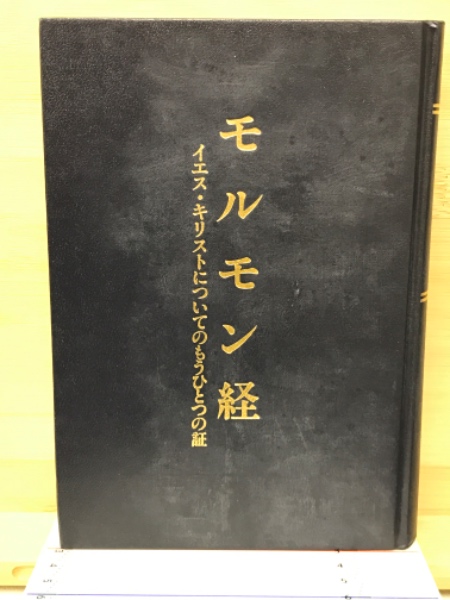 モルモン経
イエス・キリストについてのもうひとつの証